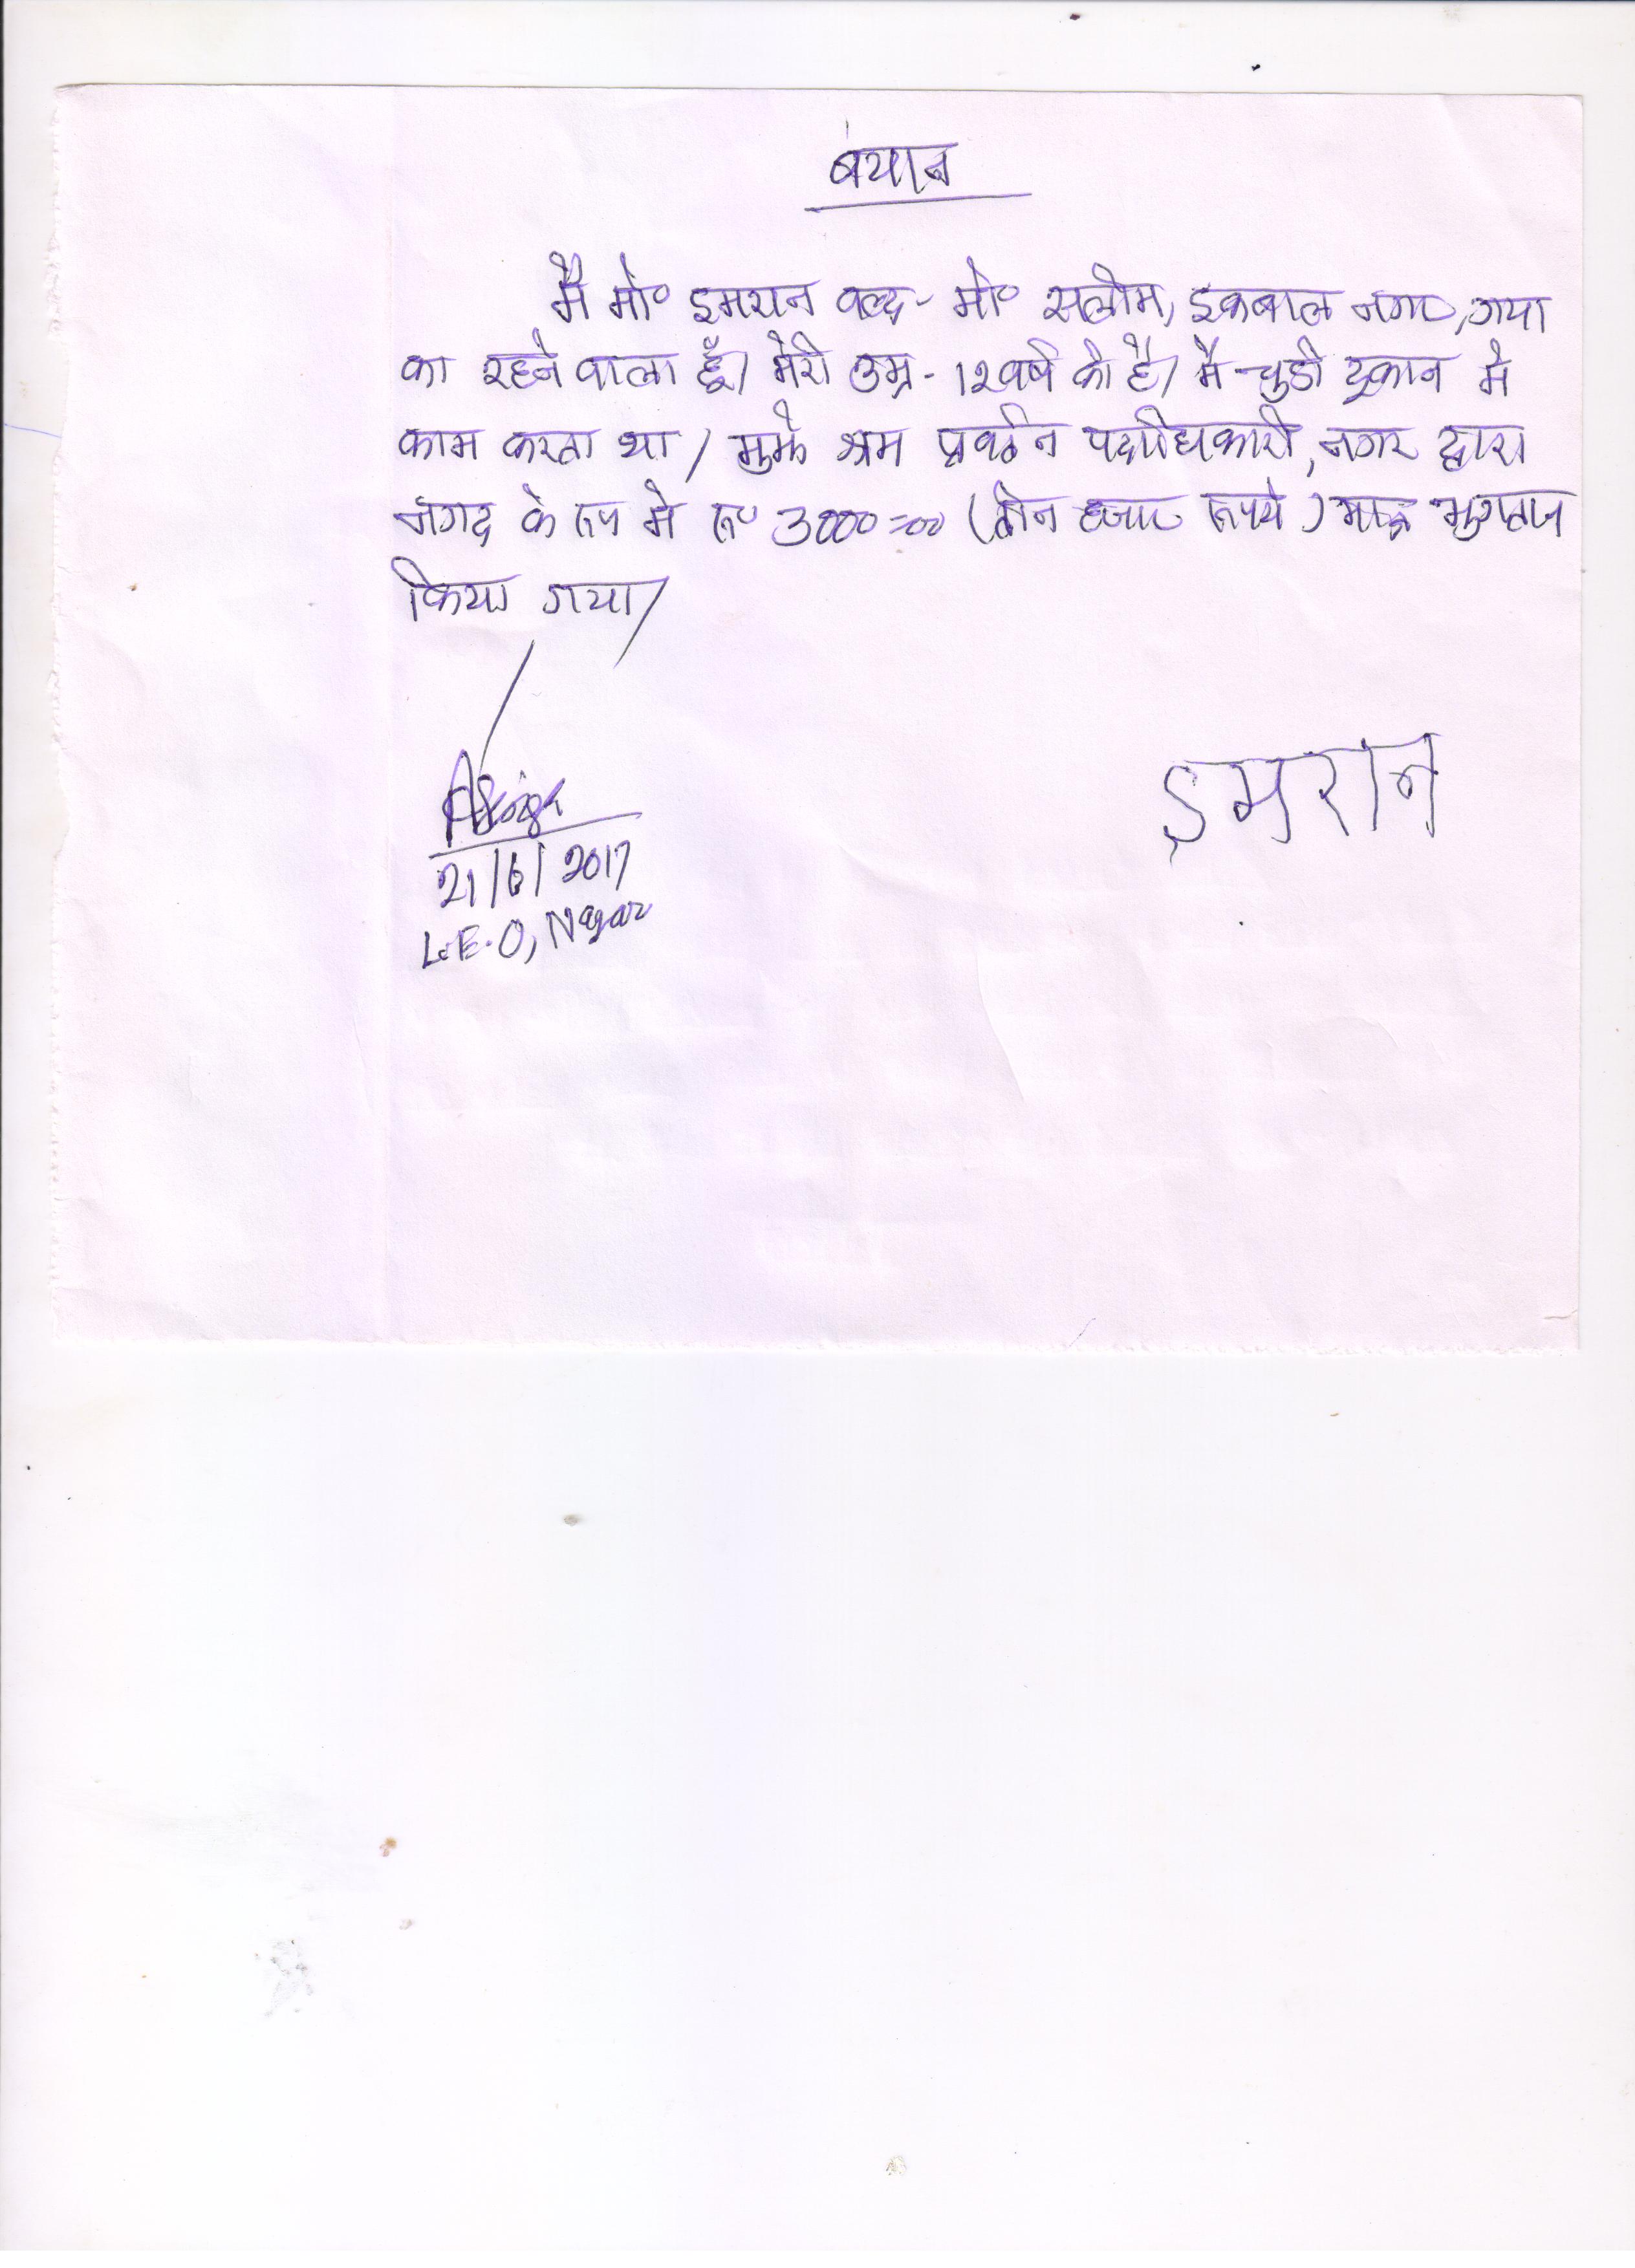 बयान
मै मो० इमरान वल्द - मो० सलीम, इकबाल नगर, गया
का रहने वाला हूँ। मेरी उम्र - 12 वर्ष की है। मै चुडी दूकान मे
काम करता था। मुझे श्रम प्रवर्तन पदाधिकारी, नगर द्वारा
नगद के रूप मे रू० 3000=00 (तीन हजार रूपये) मात्र भुगतान
किया गया।
ASingh
21/6/2017
L.E.O, Nagar
इमरान